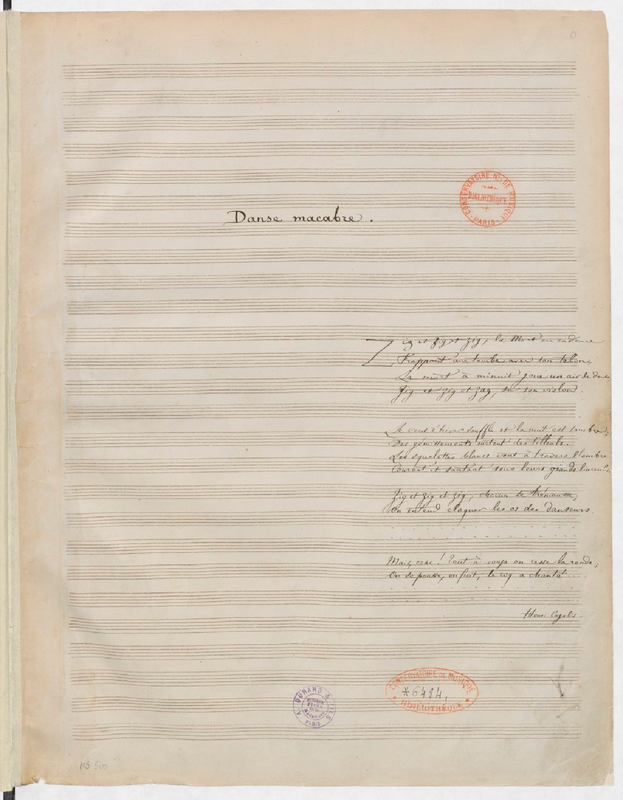 Danse macabre.
CONSERVATOIRE NAL DE MUSIQUE
BIBLIOTHÈQUE
PARIS
Zig et Zig et Zig, la Mort en cadence
Frappant une tombe avec son talon,
La mort à minuit joue un air de danse
Zig et zig et zag, sur son violon.
Le vent d'hiver souffle et la nuit est sombre;
Des gémissements sortent des tilleuls.
Les squelettes blancs vont à travers l'ombre
Courant et sautant sous leurs grands linceuls.
Zig et Zig et Zig, chacun se trémousse,
On entend claquer les os des danseurs.
Mais, psit! Tout à coup on cesse la ronde,
On se pousse, on fuit, le coq a chanté
Henri Cazalis.
CONSERVATOIRE DE MUSIQUE
*6494.
BIBLIOTHÈQUE
A. DURAND & FILS
PARIS
MS 500